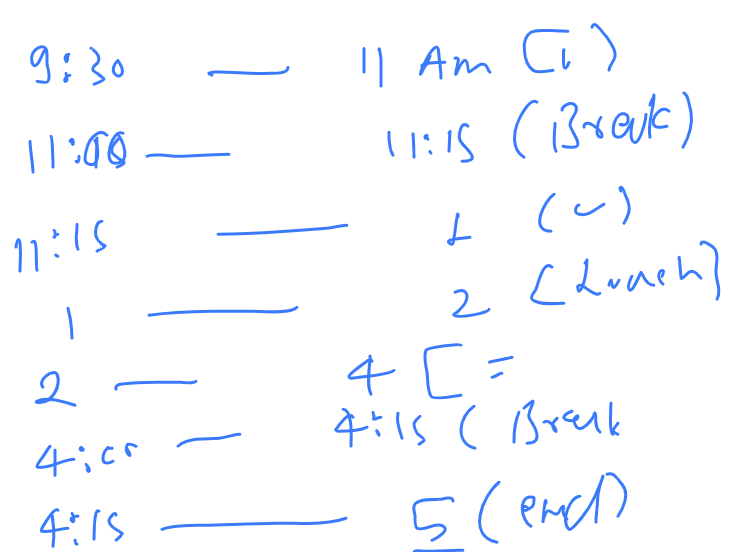 9:30 — 11 Am (1)
11:00 — 11:15 (Break)
11:15 — 1 (
1 — 2 [Lunch]
2 — 4 [
4:00 — 4:15 (Break
4:15 — 5 (end)